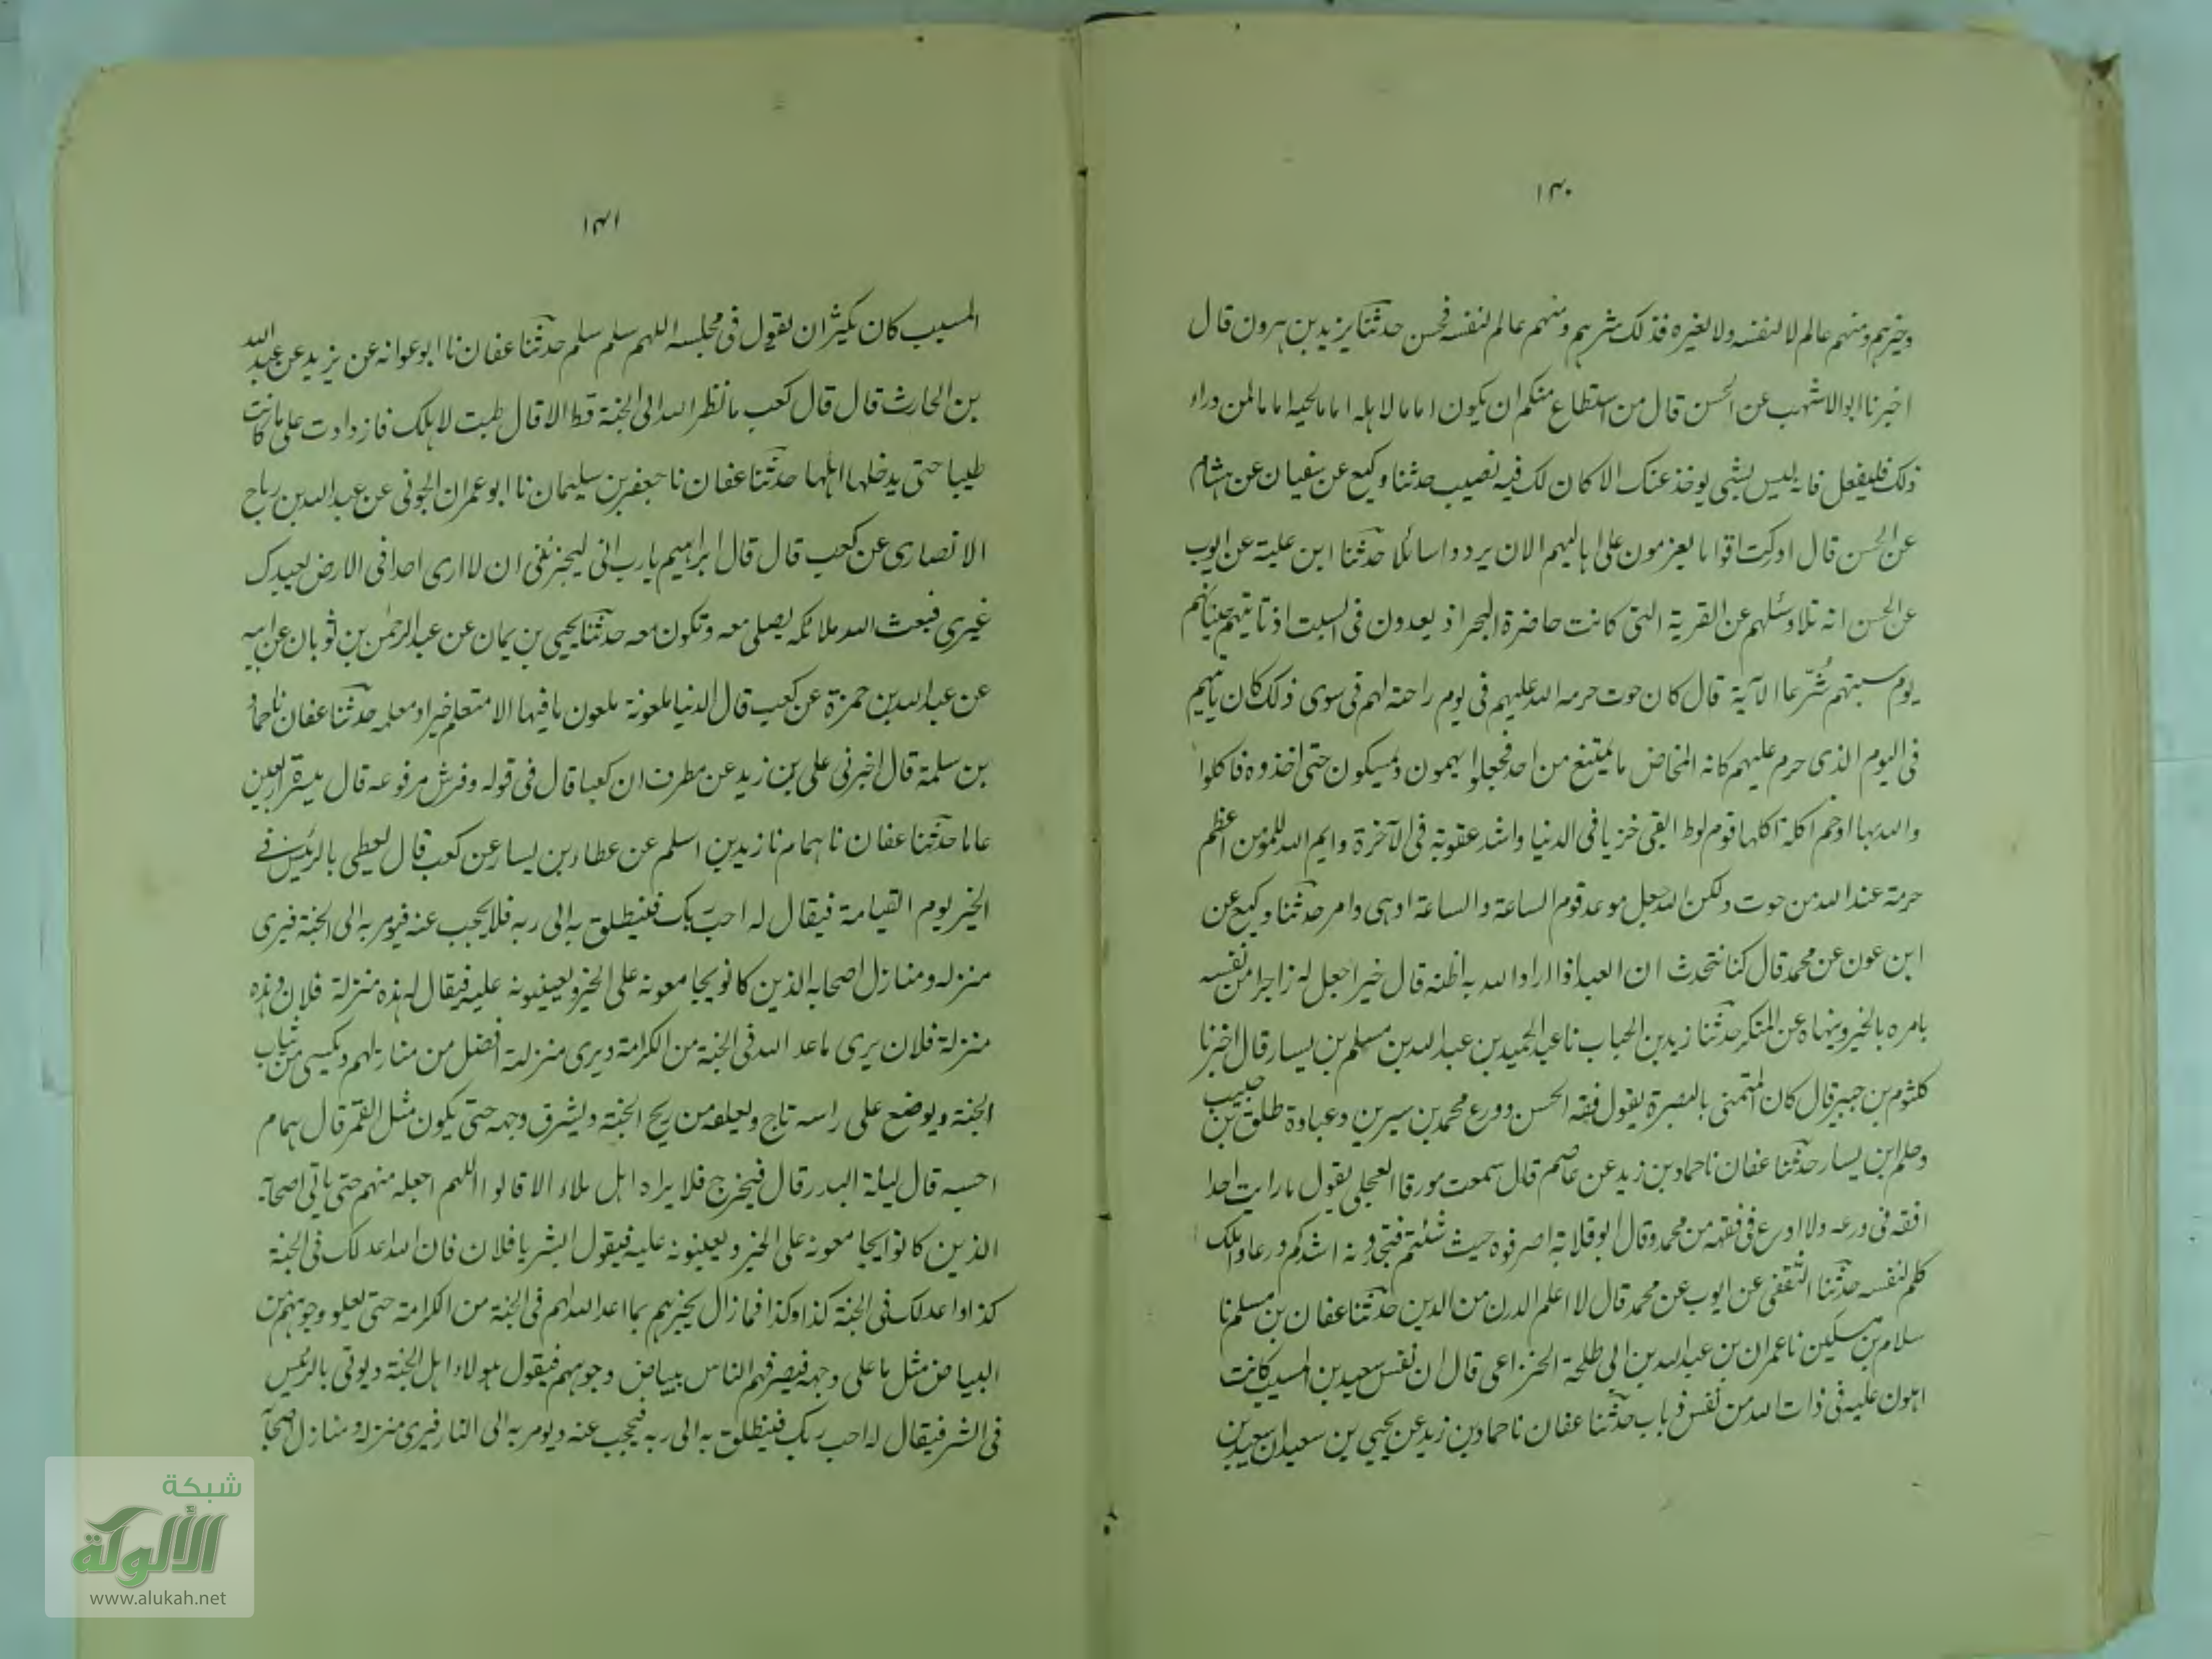 ١٣٠
وخيرهم ومنهم عالم لا لنفسه ولا لغيره فذلك شرهم ومنهم عالم لنفسه فحسن حدثنا يزيد بن هرون قال
اخبرنا ابوالاشهب عن الحسن قال من استطاع منكم ان يكون اماما لاهله اماما لحيه اماما لمن وراء
ذلك فليفعل فانه ليس بشئ يوخذ عنك الا كان لك فيه نصيب حدثنا وكيع عن سفيان عن هشام
عن الحسن قال ادركت اقواما يعزمون على اهاليهم الان يردوا سائلا حدثنا ابن علية عن ايوب
عن الحسن انه تلا وسئلهم عن القرية التى كانت حاضرة البحر اذ يعدون فى السبت اذ تاتيهم حيتانهم
يوم سبتهم شُرّعا الآية قال كان حوت حرمه الله عليهم فى يوم راحته لهم فى سوى ذلك كان ياتيهم
فى اليوم الذى حرم عليهم كانه المخاض ما يمتنع من احد فجعلوا يهمون ويمسكون حتى اخذوه فاكلوا
والله بها اوخم اكلة اكلها قوم لوط ابقى خزيا فى الدنيا واشد عقوبة فى الآخرة وايم الله للمؤمن اعظم
حرمة عند الله من حوت ولكن الله جعل موعد قوم الساعة والساعة ادهى وامر حدثنا وكيع عن
ابن عون عن محمد قال كنا نتحدث ان العبد اذا اراد الله به اظنه قال خيرا جعل له زاجرا من نفسه
يامره بالخير وينهاه عن المنكر حدثنا زيد بن الحباب نا عبد الحميد بن عبد الله بن مسلم بن يسار قال اخبرنا
كلثوم بن جبير قال كان المتمنى بالبصرة يقول فقه الحسن وورع محمد بن سيرين وعبادة طلق بن حبيب
وحلم ابن يسار حدثنا عفان نا حماد بن زيد عن عاصم قال سمعت مورقا العجلى يقول ما رايت احدا
افقه فى ورعه ولا اورع فى فقهه من محمد وقال ابو قلابة اصرفوه حيث شئتم فتجدونه اشدكم ورعا واملك
كلم لنفسه حدثنا الثقفى عن ايوب عن محمد قال لا اعلم الدرن من الدين حدثنا عفان بن مسلم نا
سلام بن مسكين نا عمران بن عبد الله بن ابى طلحة الخزاعى قال ان نفس سعيد بن المسيب كانت
اهون عليه فى ذات الله من نفس ذباب حدثنا عفان نا حماد بن زيد عن يحيى بن سعيد ان سعيد بن
١٣١
المسيب كان يكثر ان يقول فى مجلسه اللهم سلم سلم حدثنا عفان نا ابو عوانه عن يزيد عن عبد الله
بن الحارث قال قال كعب ما نظر الله الى الجنة قط الا قال طبت لاهلك فازدادت على ما كانت
طيبا حتى يدخلها اهلها حدثنا عفان نا جعفر بن سليمان نا ابو عمران الجونى عن عبد الله بن رباح
الانصارى عن كعب قال قال ابراهيم يارب انى ليحزننى ان لا ارى احدا فى الارض يعبدك
غيرى فبعث الله ملائكه يصلى معه وتكون معه حدثنا يحيى بن يمان عن عبد الرحمٰن بن ثوبان عن ابيه
عن عبد الله بن حمزة عن كعب قال الدنيا ملعونة ملعون ما فيها الا متعلم خيرا ومعلمه حدثنا عفان نا حماد
بن سلمة قال اخبرنى على بن زيد عن مطرف ان كعبا قال فى قوله وفرش مرفوعه قال ميسرة اربعين
عاما حدثنا عفان نا همام نا زيد بن اسلم عن عطاء بن يسار عن كعب قال يعطى بالرئيس فى
الخير يوم القيامة فيقال له اجب ربك فينطلق به الى ربه فلا يحجب عنه فيومر به الى الجنة فيرى
منزله ومنازل اصحابه الذين كانو يجامعونه على الخير ويعينونه عليه فيقال له هذه منزلة فلان وهذه
منزلة فلان يرى ما عد الله فى الجنة من الكرامة ويرى منزلته افضل من منازلهم ويكسى من ثياب
الجنة ويوضع على راسه تاج ويعلقه من ريح الجنة ويشرق وجهه حتى يكون مثل القمر قال همام
احسبه قال ليلة البدر قال فيخرج فلا يراه اهل ملاء الا قالوا اللهم اجعله منهم حتى ياتى اصحابه
الذين كانوا يجامعونه على الخير ويعينونه عليه فيقول ابشر يا فلان فان الله اعد لك فى الجنة
كذا واعد لك فى الجنة كذا وكذا فما زال يخبرهم بما اعد الله لهم فى الجنة من الكرامة حتى يعلو وجوههم من
البياض مثل ما على وجهه فيعرفهم الناس ببياض وجوههم فيقول هولاء اهل الجنة ويوتى بالرئيس
فى الشر فيقال له اجب ربك فينطلق به الى ربه فيحجب عنه ويومر به الى النار فيرى منزله ومنازل اصحابه
شبكة
الألوكة
www.alukah.net